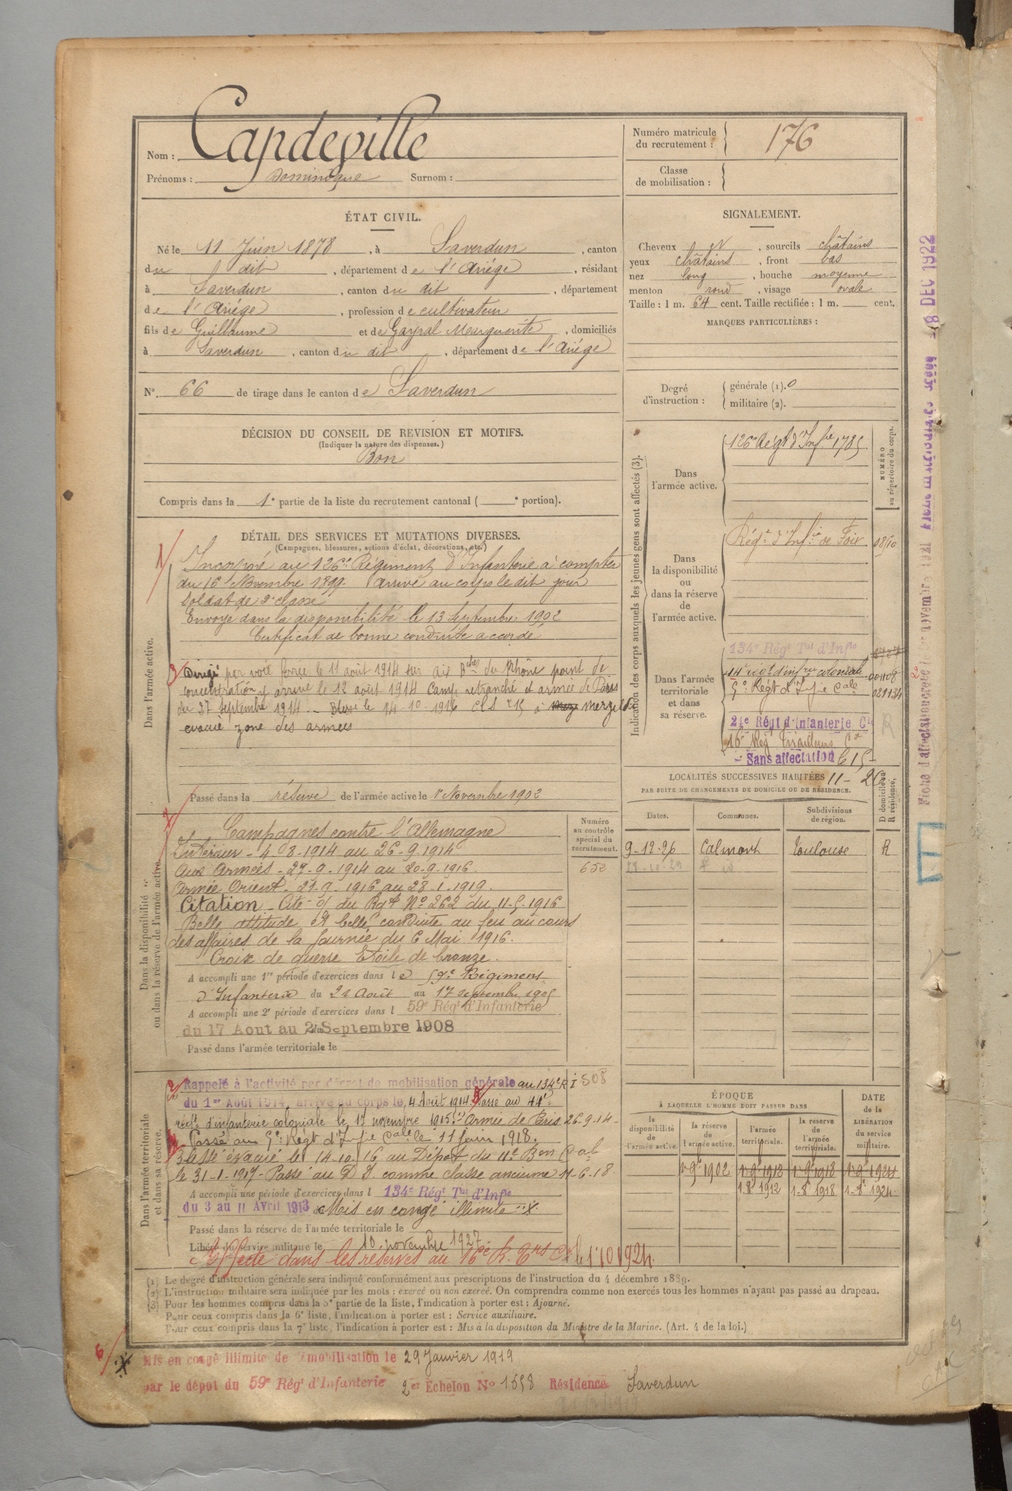 Nom : Capdeville
Prénoms : Dominique Surnom :
Numéro matricule du recrutement : 176
Classe de mobilisation :
ÉTAT CIVIL.
Né le 11 Juin 1878, à Saverdun, canton
du dit, département de l'Ariége, résidant
à Saverdun, canton du dit, département
de l'Ariége, profession de cultivateur
fils de Guillaume et de Gayral Marguerite, domiciliés
à Saverdun, canton du dit, département de l'Ariége
N° 66 de tirage dans le canton de Saverdun
SIGNALEMENT.
Cheveux et, sourcils châtains
yeux châtains, front bas
nez long, bouche moyenne
menton rond, visage ovale
Taille : 1 m. 64 cent. Taille rectifiée : 1 m. cent.
MARQUES PARTICULIÈRES :
Degré d'instruction : générale (1). 0
militaire (2).
DÉCISION DU CONSEIL DE REVISION ET MOTIFS.
(Indiquer la nature des dispenses.)
Bon
Compris dans la 1e partie de la liste du recrutement cantonal ( e portion).
DÉTAIL DES SERVICES ET MUTATIONS DIVERSES.
(Campagnes, blessures, actions d'éclat, décorations, etc.)
Dans l'armée active.
1/ Incorporé au 126e Régiment d'Infanterie à compter
du 16 Novembre 1899 arrivé au corps le dit jour
soldat de 2e classe
Envoyé dans la disponibilité le 13 Septembre 1902
Certificat de bonne conduite accordé
Dirigé par voie ferrée le 11 août 1914 sur Aix Bches du Rhône point de
concentration et arrivé le 12 août 1914 Camp retranché et armée de Paris
du 27 septembre 1914 - Blessé le 14-10-1916
évacué zone des armées
Passé dans la réserve de l'armée active le 1er Novembre 1902
Dans la disponibilité ou dans la réserve de l'armée active.
Campagnes contre l'Allemagne
Intérieur - 4-8-1914 au 26-9-1914
Aux Armées - 27-9-1914 au 20-9-1916
Armée Orient - 21-9-1916 au 28-1-1919.
Citation - Cité à l'O/ du Rgt N° 262 du 11-5-1916
Belle attitude et belle conduite au feu au cours
des affaires de la journée du 6 Mai 1916.
Croix de guerre Etoile de bronze.
A accompli une 1re période d'exercices dans le 59e Régiment
d'Infanterie du 21 Août au 17 septembre 1905
A accompli une 2e période d'exercices dans l 59e Régt d'Infanterie
du 17 Aout au 2 Septembre 1908
Passé dans l'armée territoriale le
Numéro au contrôle spécial du recrutement.
652
Dans l'armée territoriale et dans sa réserve.
Rappelé à l'activité par décret de mobilisation générale au 134e R I 508
du 1er Aout 1914, arrivé au corps le 4 Août 1914 Passé au 44e
régt d'infanterie coloniale le 17 novembre 1915 Armée de Paris 26-9-14
Passé au 5e Régt d'Inf.ie Cale le 11 Juin 1918.
Blessé évacué le 14-10-16 au Dépôt du 11e Bon
le 31-1-1917 - Passé au D. I. comme classe ancienne 11-6-18
A accompli une période d'exercices dans l 134e Régt Tal d'Infie
du 3 au 11 Avril 1913 Mis en congé illimité
Passé dans la réserve de l'armée territoriale le
Libéré du service militaire le 10 novembre 1927.
Affecté dans les réserves au 16e R. Tirs le 1.10.1924.
Indication des corps auxquels les jeunes gens sont affectés (3).
NUMÉRO au répertoire du corps.
Dans l'armée active.
126e Régt d'Infie 1785
Dans la disponibilité ou dans la réserve de l'armée active.
Régt d'Infie de Foix
Dans l'armée territoriale et dans sa réserve.
134e Régt Tal d'Infie
44e régt d'inf.rie coloniale
5e Régt d'Inf.ie Cale 021134
24e Régt d'Infanterie Cle
16e Régt Tirailleurs
Sans affectation
LOCALITÉS SUCCESSIVES HABITÉES
PAR SUITE DE CHANGEMENTS DE DOMICILE OU DE RÉSIDENCE.
Dates. Communes. Subdivisions de région. D domicile. R résidence.
9-12-26 Calmont Toulouse R
ÉPOQUE
À LAQUELLE L'HOMME DOIT PASSER DANS
la disponibilité de l'armée active. la réserve de l'armée active. l'armée territoriale. la réserve de l'armée territoriale.
DATE de la LIBÉRATION du service militaire.
1-9bre 1902 1-9bre 1912 1-9bre 1918 1-9bre 1924
1-8-1912 1-8-1918 1-8-1924
(1) Le degré d'instruction générale sera indiqué conformément aux prescriptions de l'instruction du 4 décembre 1889.
(2) L'instruction militaire sera indiquée par les mots : exercé ou non exercé. On comprendra comme non exercés tous les hommes n'ayant pas passé au drapeau.
(3) Pour les hommes compris dans la 5e partie de la liste, l'indication à porter est : Ajourné.
Pour ceux compris dans la 6e liste, l'indication à porter est : Service auxiliaire.
Pour ceux compris dans la 7e liste, l'indication à porter est : Mis à la disposition du Ministre de la Marine. (Art. 4 de la loi.)
6/ X Mis en congé illimité de démobilisation le 29 Janvier 1919
par le dépôt du 59e Régt d'Infanterie 2er Echelon N° 1658 Résidence Saverdun
18 DEC 1922